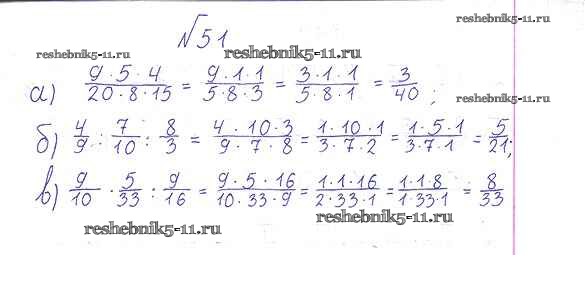 reshebnik5-11.ru
№51
reshebnik5-11.ru
reshebnik5-11.ru
а) (9·5·4)/(20·8·15) = (9·1·1)/(5·8·3) = (3·1·1)/(5·8·1) = 3/40;
reshebnik5-11.ru
б) 4/9 : 7/10 : 8/3 = (4·10·3)/(9·7·8) = (1·10·1)/(3·7·2) = (1·5·1)/(3·7·1) = 5/21;
в) 9/10 · 5/33 : 9/16 = (9·5·16)/(10·33·9) = (1·1·16)/(2·33·1) = (1·1·8)/(1·33·1) = 8/33
reshebnik5-11.ru
reshebnik5-11.ru